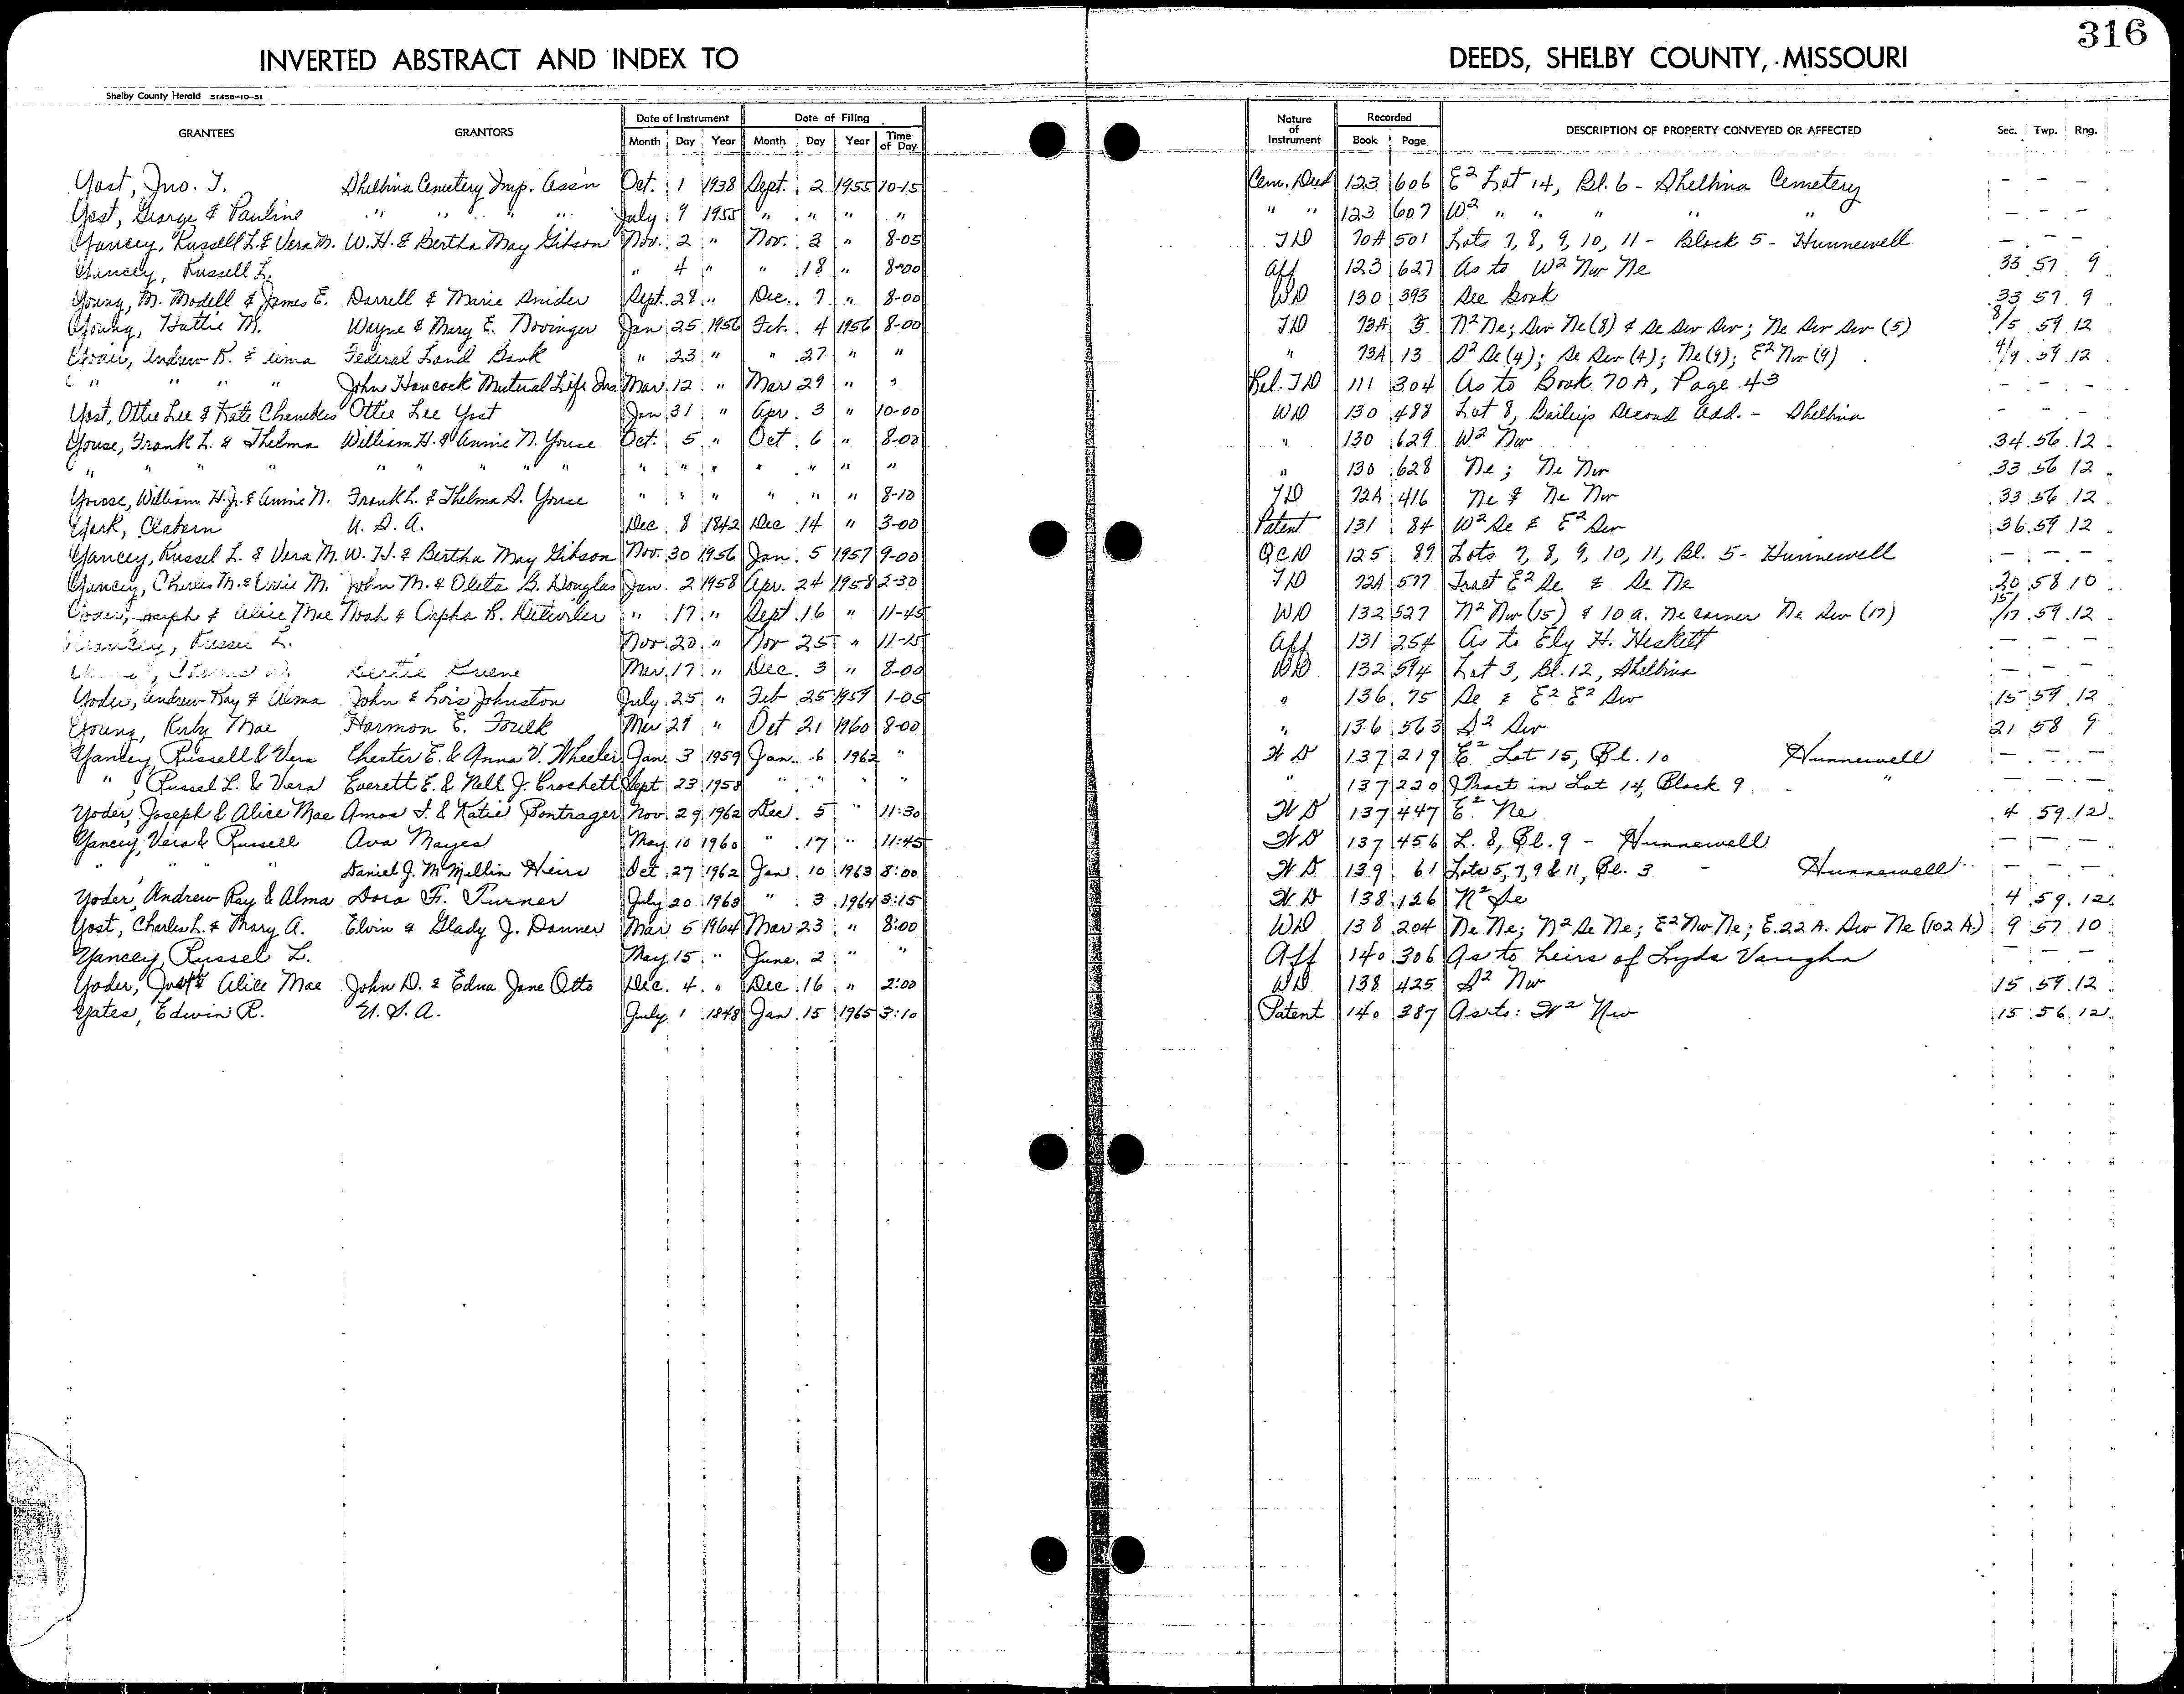 316
INVERTED ABSTRACT AND INDEX TO DEEDS, SHELBY COUNTY, MISSOURI
Shelby County Herald 51458-10-51
GRANTEES GRANTORS Date of Instrument Date of Filing Nature of Instrument Recorded DESCRIPTION OF PROPERTY CONVEYED OR AFFECTED Sec. Twp. Rng.
Month Day Year Month Day Year Time of Day Book Page
Yost, Jno. T. Shelbina Cemetery Imp. Ass'n Oct. 1 1938 Sept. 2 1955 10-15 Cem. Deed 123 606 E² Lot 14, Bl. 6 - Shelbina Cemetery - - -
Yost, George & Pauline " " " " July 9 1955 " " " " " " 123 607 W² " " " " " - - -
Yancey, Russell L. & Vera M. W. H. & Bertha May Gibson Nov. 2 " Nov. 2 " 8-05 TD 70A 501 Lots 7, 8, 9, 10, 11 - Block 5 - Hunnewell - - -
Yancey, Russell L. " 4 " " 18 " 8-00 Aff 123 627 As to W² Nw Ne 33 57 9
Young, M. Modell & James E. Darrell & Marie Snider Sept. 28 " Dec. 7 " 8-00 WD 130 393 See Book 33 57 9
Young, Hattie M. Wayne & Mary E. Novinger Jan 25 1956 Feb. 4 1956 8-00 TD 73A 5 N² Ne; Sw Ne (8) & Se Sw Sw; Ne Sw Sw (5) 8/5 59 12
Andrew R. & Alma Federal Land Bank " 23 " " 27 " " " 73A 13 S² Se (4); Se Sw (4); Ne (9); E² Nw (9) 4/9 59 12
" " " " John Hancock Mutual Life Ins. Mar. 12 " Mar 29 " " Rel. TD 111 304 As to Book 70A, Page 43 - - -
Yost, Ottie Lee & Kate Ottie Lee Yost Jan 31 " Apr. 3 " 10-00 WD 130 488 Lot 8, Bailey's Second Add. - Shelbina - - -
Youse, Frank L. & Thelma William H. & Annie N. Youse Oct. 5 " Oct. 6 " 8-00 " 130 629 W² Nw 34 56 12
" " " " " " " " " " " " " " " " " 130 628 Ne; Ne Nw 33 56 12
Youse, William H. Jr. & Annie N. Frank L. & Thelma D. Youse " " " " " " 8-10 TD 72A 416 Ne & Ne Nw 33 56 12
York, Clabern U. S. A. Dec. 8 1842 Dec 14 " 3-00 Patent 131 84 W² Se & E² Sw 36 59 12
Yancey, Russel L. & Vera M. W. H. & Bertha May Gibson Nov. 30 1956 Jan. 5 1957 9-00 QCD 125 89 Lots 7, 8, 9, 10, 11, Bl. 5 - Hunnewell - - -
Yancey, Charles M. & M. John M. & Oleta B. Douglas Jan. 2 1958 Apr. 24 1958 2-30 TD 72A 577 Tract E² Se & Se Ne 20 58 10
Yoder, Joseph & Alice Mae Noah & Orpha R. Detwiler " 17 " Sept. 16 " 11-45 WD 132 527 N² Nw (15) & 10 a. Ne corner Ne Sw (17) 15/17 59 12
Yancey, L. Nov. 20 " Nov 25 " 11-15 Aff 131 254 As to Ely H. Heskett - - -
Bertie Mar. 17 " Dec. 3 " 8-00 WD 132 594 Lot 3, Bl. 12, Shelbina - - -
Yoder, Andrew Ray & Alma John & Lois Johnston July 25 " Feb 25 1959 1-05 " 136 75 Se & E² E² Sw 15 59 12
Young, Ruby Mae Harmon E. Foulk Mar 29 " Oct 21 1960 8-00 " 136 563 S² Sw 21 58 9
Yancey, Russell & Vera Chester E. & Anna V. Wheeler Jan. 3 1959 Jan. 6 1962 " WD 137 219 E² Lot 15, Bl. 10 Hunnewell - - -
" , Russel L. & Vera Everett E. & Nell J. Crockett Sept 23 1958 " " " " " 137 220 Tract in Lot 14, Block 9 " - - -
Yoder, Joseph & Alice Mae Amos J. & Katie Bontrager Nov. 29 1962 Dec. 5 " 11:30 WD 137 447 E² Ne 4 59 12
Yancey, Vera & Russell Ava Mayes May 10 1960 " 17 " 11:45 WD 137 456 L. 8, Bl. 9 - Hunnewell - - -
" " " Daniel J. McMillin Heirs Oct. 27 1962 Jan 10 1963 8:00 WD 139 61 Lots 5, 7, 9 & 11, Bl. 3 - Hunnewell - - -
Yoder, Andrew Ray & Alma Dora F. Turner July 20 1963 " 3 1964 3:15 WD 138 126 N² Se 4 59 12
Yost, Charles L. & Mary A. Elvin & Glady J. Danner Mar 5 1964 Mar 23 " 8:00 WD 138 204 Ne Ne; N² Se Ne; E² Nw Ne; E. 22 A. Sw Ne (102 A) 9 57 10
Yancey, Russel L. May 15 " June 2 " " Aff 140 306 As to heirs of Lyda Vaughn - - -
Yoder, Jos. & Alice Mae John D. & Edna Jane Otto Dec. 4 " Dec 16 " 2:00 WD 138 425 S² Nw 15 59 12
Yates, Edwin R. U. S. A. July 1 1848 Jan 15 1965 3:10 Patent 140 387 As to: W² Nw 15 56 12